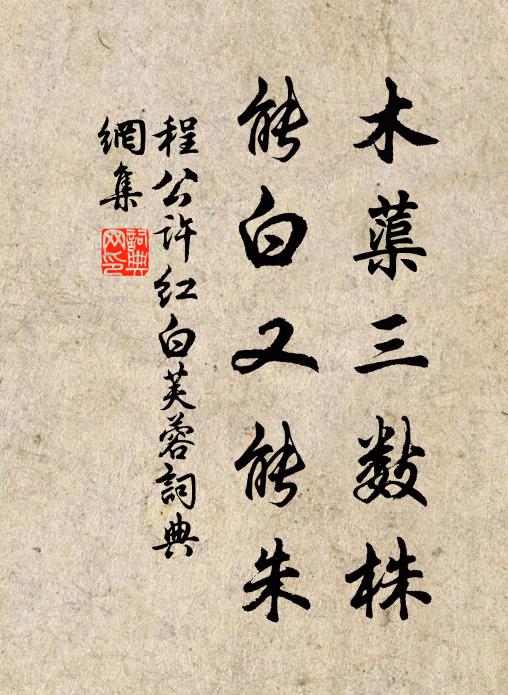 木蕖三数株
能白又能朱
程公许红白芙蓉詞典
網集
詞典网印